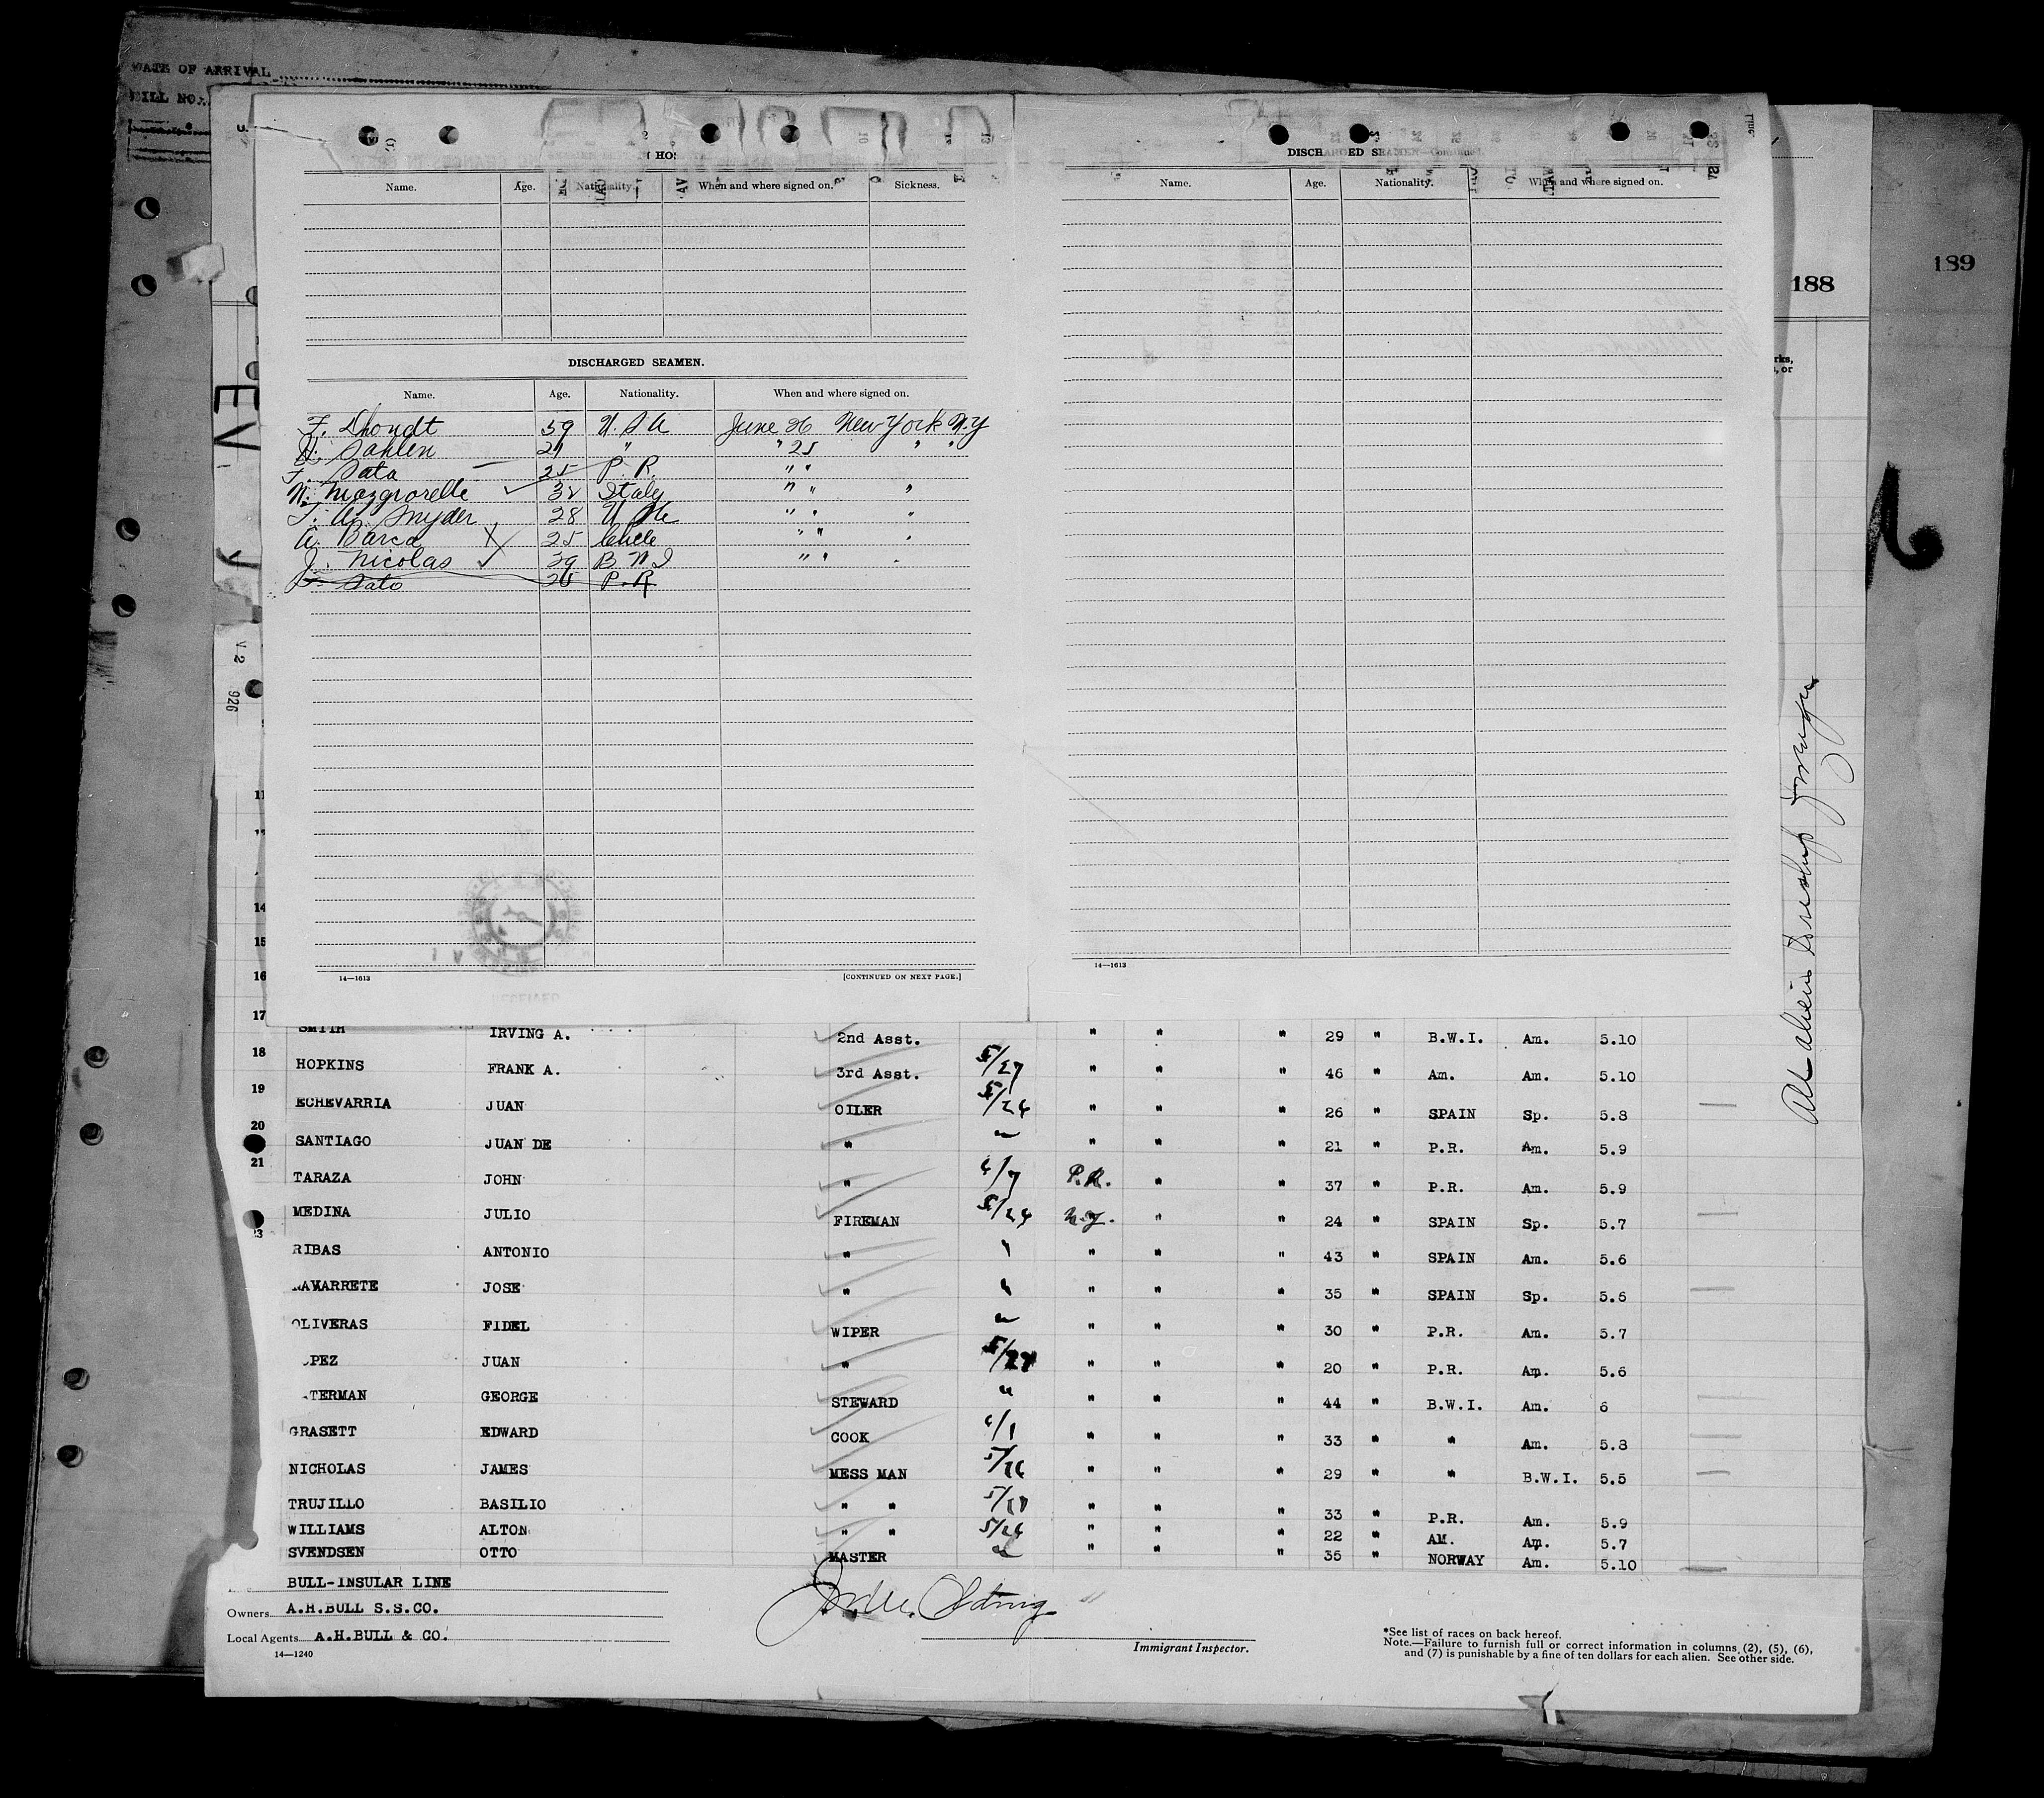 DATE OF ARRIVAL
BILL NO.
189
188
Name. Age. Nationality. When and where signed on. Sickness.
DISCHARGED SEAMEN.
Name. Age. Nationality. When and where signed on.
F. Dhondt 39 U.S.A June 26 New York N.Y
H. Sahlen 21 " " 25 " "
F. Sata 25 P.R. " "
32 Italy " " "
T. A. Snyder 28 " " "
A. Barca 25 Chile " " "
J. Nicolas 39 B W I " " "
F. Sato 26 P.R
14—1613 [CONTINUED ON NEXT PAGE.]
DISCHARGED SEAMEN—Continued.
Name. Age. Nationality. When and where signed on.
14—1613
14
15
16
17 SMITH IRVING A. 2nd Asst. " " " 29 " B.W.I. Am. 5.10
18 HOPKINS FRANK A. 3rd Asst. 5/27 " " " 46 " Am. Am. 5.10
19 ECHEVARRIA JUAN OILER 5/26 " " " 26 " SPAIN Sp. 5.8
20 SANTIAGO JUAN DE " " " " " 21 " P.R. Am. 5.9
21 TARAZA JOHN " 6/7 P.R. " " 37 " P.R. Am. 5.9
MEDINA JULIO FIREMAN 5/24 N.Y. " " 24 " SPAIN Sp. 5.7
RIBAS ANTONIO " " " " " 43 " SPAIN Am. 5.6
NAVARRETE JOSE " " " " " 35 " SPAIN Sp. 5.6
OLIVERAS FIDEL WIPER " " " " 30 " P.R. Am. 5.7
OPEZ JUAN " " " " 20 " P.R. Am. 5.6
TERMAN GEORGE STEWARD " " " " 44 " B.W.I. Am. 6
GRASETT EDWARD COOK 6/1 " " " 33 " " Am. 5.8
NICHOLAS JAMES MESS MAN 5/26 " " " 29 " " B.W.I. 5.5
TRUJILLO BASILIO " " " " " 33 " P.R. Am. 5.9
WILLIAMS ALTON " " 5/26 " " " 22 " AM. Am. 5.7
SVENDSEN OTTO MASTER " " " " 35 " NORWAY Am. 5.10
BULL-INSULAR LINE
Owners A.H.BULL S.S.CO.
Local Agents A.H.BULL & CO.
14—1240
Immigrant Inspector.
*See list of races on back hereof.
Note.—Failure to furnish full or correct information in columns (2), (5), (6),
and (7) is punishable by a fine of ten dollars for each alien. See other side.